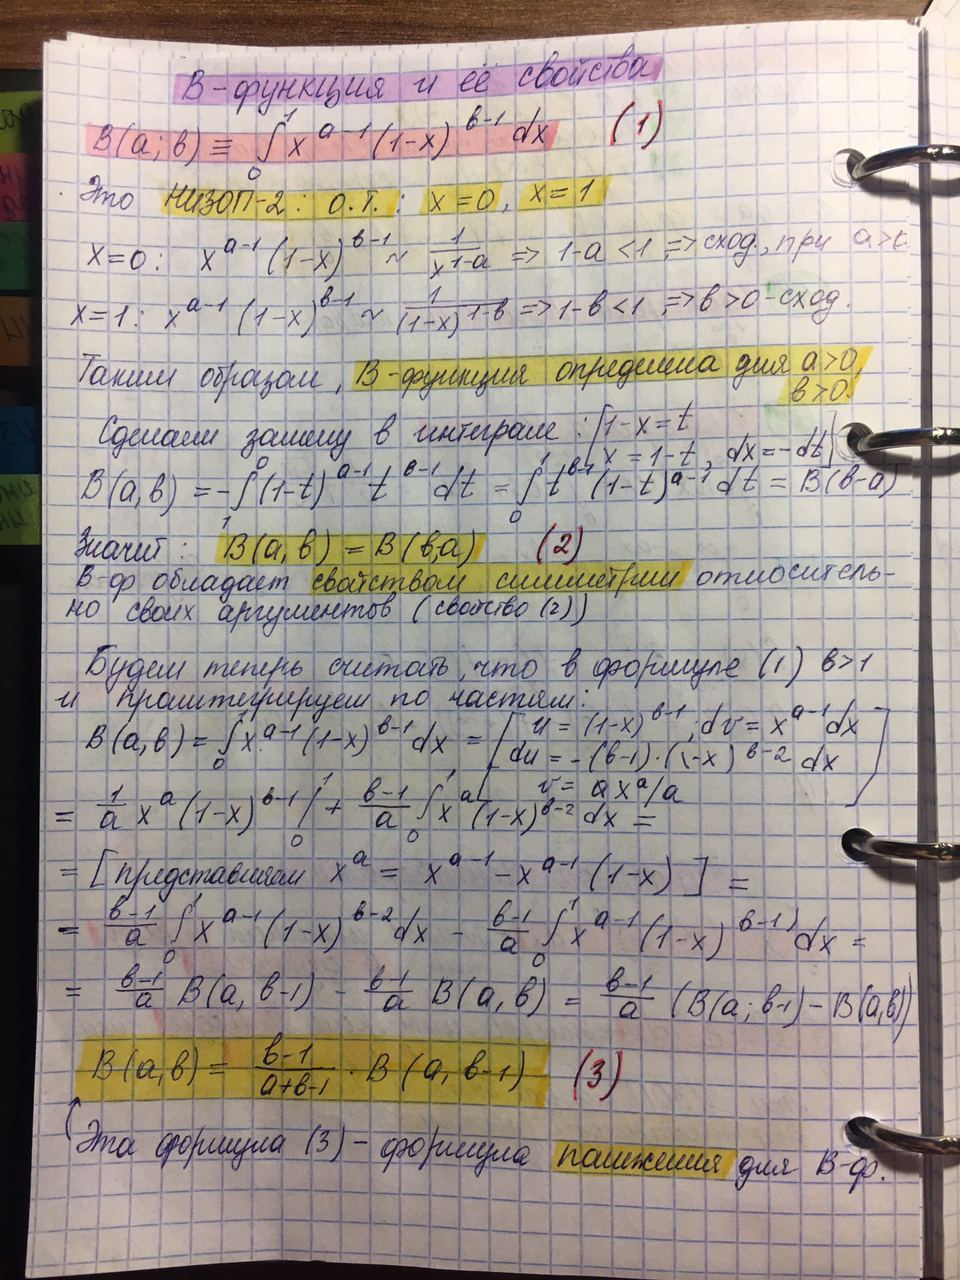 В-функция и её свойства
B(a;в) ≡ ∫₀¹ x^(a-1) (1-x)^(в-1) dx (1)
Это НИЗОП-2: о.т.: x=0, x=1
x=0: x^(a-1) (1-x)^(в-1) ~ 1/x^(1-a) => 1-a<1 => сход., при a>0
x=1: x^(a-1) (1-x)^(в-1) ~ 1/(1-x)^(1-в) => 1-в<1 => в>0-сход.
Таким образом, В-функция определена для a>0,
в>0.
Сделаем замену в интеграле: [1-x=t
x=1-t, dx=-dt]
B(a,в) = -∫₁⁰ (1-t)^(a-1) t^(в-1) dt = ∫₀¹ t^(в-1) (1-t)^(a-1) dt = B(в-a)
Значит: B(a,в) = B(в,a) (2)
В-ф обладает свойством симметрии относитель-
но своих аргументов (свойство (2))
Будем теперь считать, что в формуле (1) в>1
и проинтегрируем по частям:
B(a,в) = ∫₀¹ x^(a-1) (1-x)^(в-1) dx = [u = (1-x)^(в-1); dv = x^(a-1) dx
du = -(в-1)·(1-x)^(в-2) dx
v = a x^a/a]
= 1/a x^a (1-x)^(в-1) |₀¹ + (в-1)/a ∫₀¹ x^a (1-x)^(в-2) dx =
= [представляем x^a = x^(a-1) - x^(a-1) (1-x)] =
= (в-1)/a ∫₀¹ x^(a-1) (1-x)^(в-2) dx - (в-1)/a ∫₀¹ x^(a-1) (1-x)^(в-1) dx =
= (в-1)/a B(a,в-1) - (в-1)/a B(a,в) = (в-1)/a (B(a;в-1) - B(a,в))
B(a,в) = (в-1)/(a+в-1) · B(a,в-1) (3)
Эта формула (3) - формула понижения для В-ф.